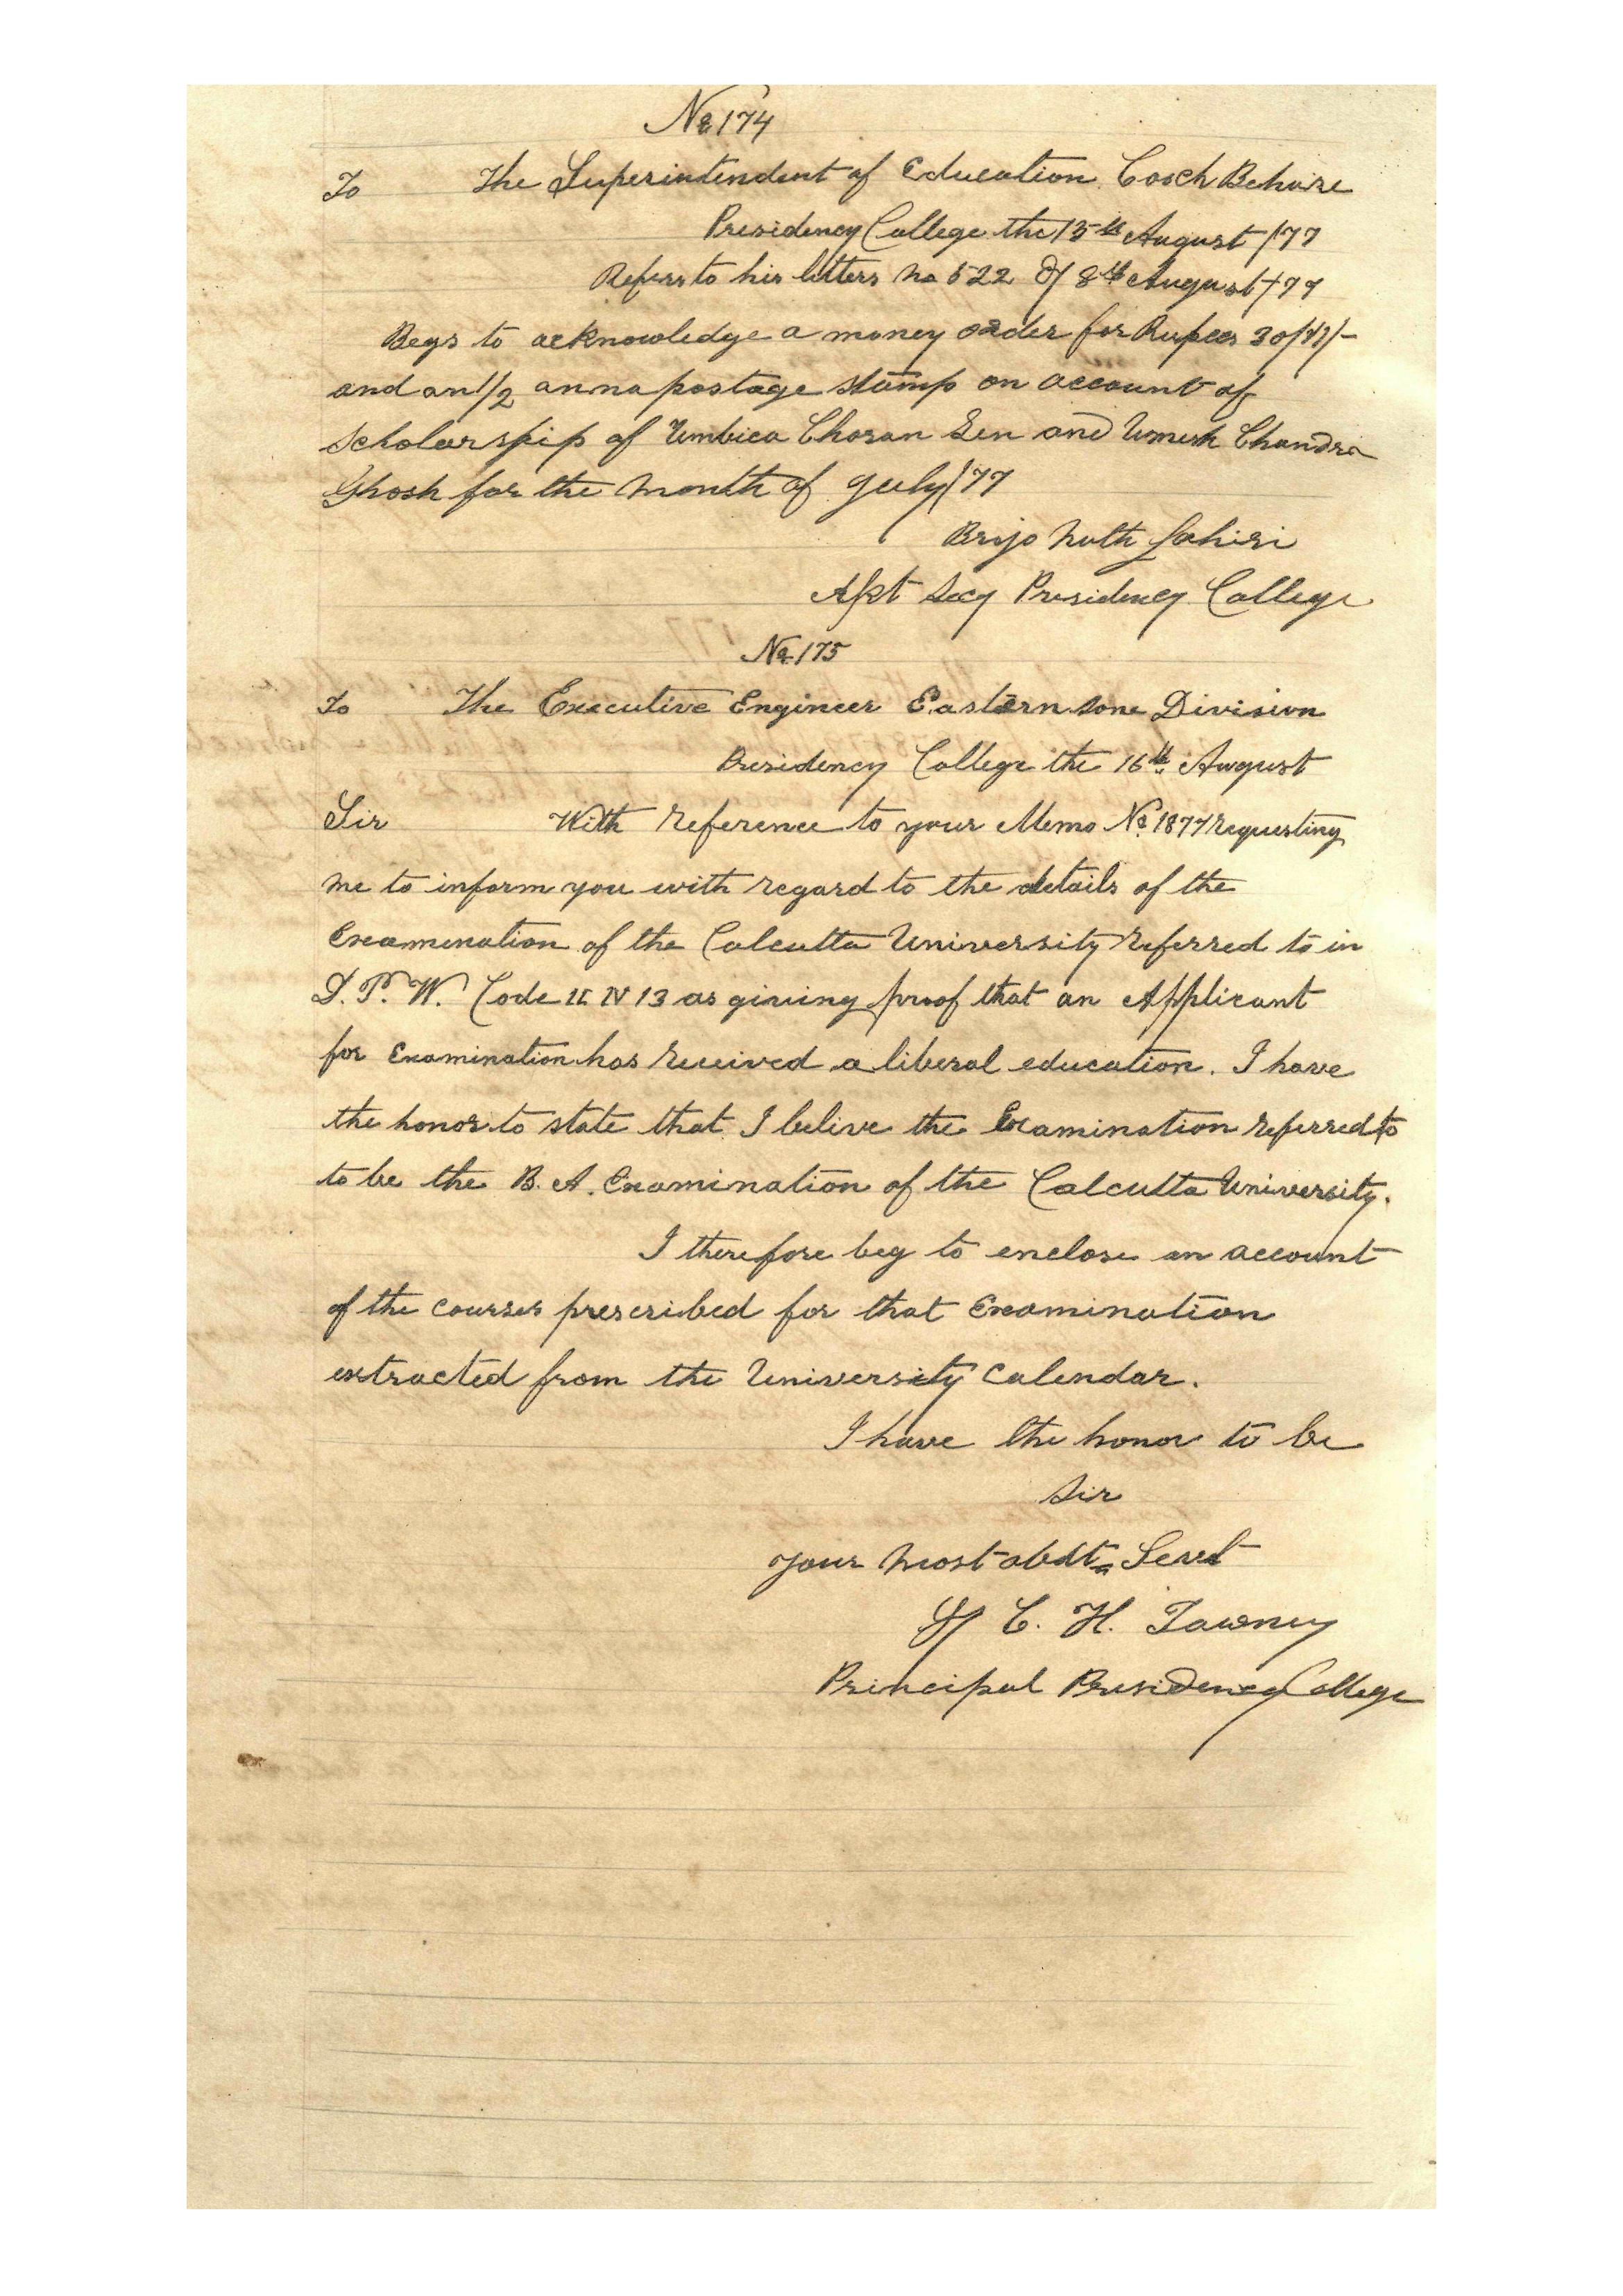 No 174
To The Superintendent of Education Cooch Behare
Presidency College the 15th August /77
Refers to his letters no 522 of 8th August /77
Begs to acknowledge a money order for Rupees
and an 1/2 anna postage stamp on account of
scholarship of Umbica Choran Sen and Umesh Chandra
Ghosh for the month of July/77
Brijo Nath Lahiri
Asst Secy Presidency College
No 175
To The Executive Engineer Eastern Sone Division
Presidency College the 16th August
Sir With reference to your Memo No. 1877 requesting
me to inform you with regard to the details of the
Examination of the Calcutta University referred to in
D. P. W. Code II IV 13 as giving proof that an Applicant
for Examination has received a liberal education. I have
the honor to state that I belive the Examination referred to
to be the B. A. Examination of the Calcutta University.
I therefore beg to enclose an account
of the courses prescribed for that Examination
extracted from the University Calendar.
I have the honor to be
Sir
your most obdt Servt
C. H. Tawney
Principal Presidency College